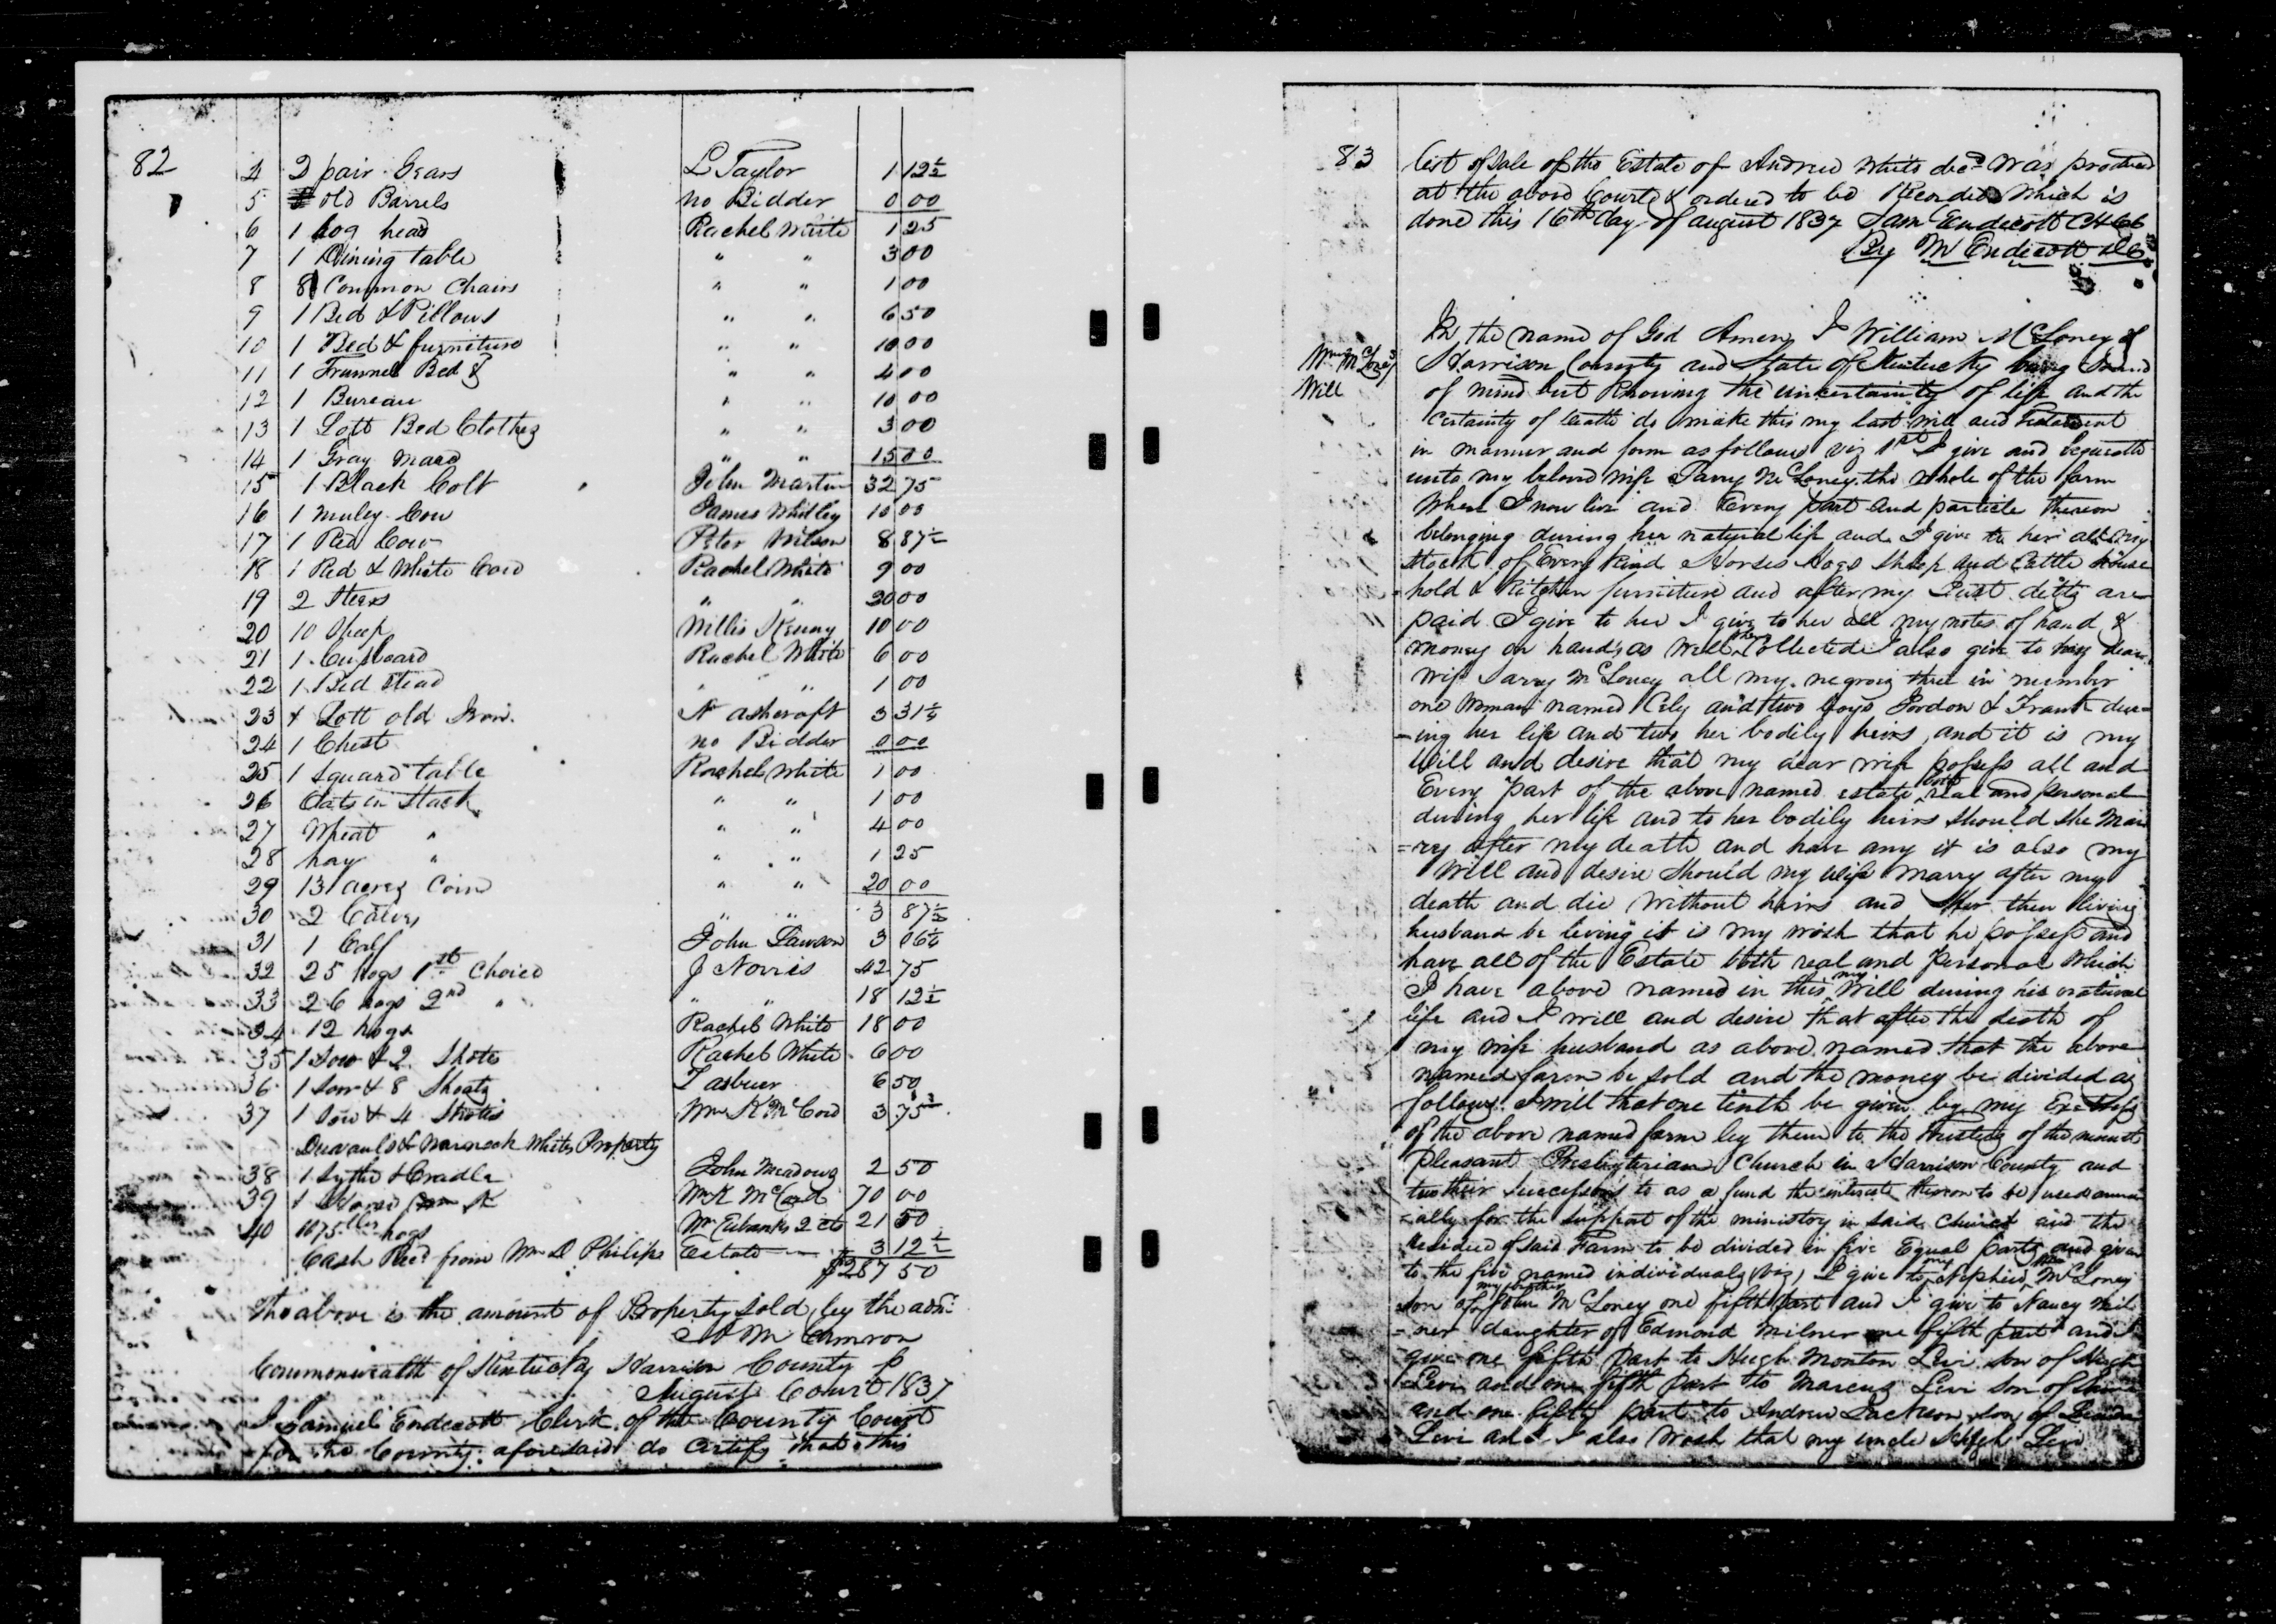 82
4 2 pair Gears L Taylor 1 12½
5 old Barrels no Bidder 0 00
6 1 hog head Rachel White 1 25
7 1 Dining table " " 3 00
8 8 Common Chairs " " 1 00
9 1 Bed & Pillows " " 6 50
10 1 Bed & furniture " " 10 00
11 1 Trunnel Bed & " " 4 00
12 1 Bureau " " 10 00
13 1 Lott Bed Clothes " " 3 00
14 1 Gray Mare " " 15 00
15 1 Black Colt John Martin 32 75
16 1 muley Cow James Whitley 10 00
17 1 Red Cow Peter Wilson 8 87½
18 1 Red & White Cow Rachel White 9 00
19 2 Steers " " 30 00
20 10 Sheep Willis 10 00
21 1 Cupboard Rachel White 6 00
22 1 Bed Stead " " 1 00
23 & Lott old Iron N ashcraft 3 31¼
24 1 Chest no Bidder 0 00
25 1 Square table Rachel White 1 00
26 Oats in Stack " " 1 00
27 Wheat " " " 4 00
28 hay " " " 1 25
29 13 acres Corn " " 20 00
30 2 Calves " " 3 87½
31 1 Calf John Lawson 3 06¼
32 25 hogs 1st Choice J Norris 42 75
33 26 hogs 2nd " " " 18 12½
34 12 hogs Rachel White 18 00
35 1 Sow & 2 Shots Rachel White 6 00
36 1 Sow & 8 Shoats 6 50
37 1 Sow & 4 Shotts Wm K McCord 3 75
& Whites Property
38 1 Sythe & Cradle John Meadows 2 50
39 1 Wm K McCord 70 00
40 1075 lbs hogs Wm Eubanks 2 cts 21 50
Cash Recd from Wm D Philips Estate 3 12½
$287 50
The above is the amount of Property sold by the adm
Commonwealth of Kentucky Harrison County
August Court 1837
I Samuel Endecott Clerk of the County Court
for the County aforesaid do Certify that this
83
list of Sale of the Estate of Andrew White decd was produced
at the above Court & ordered to be Recorded Which is
done this 16th day of august 1837 Sam Endecott
By M Endecott DC
Wm McLoney's
Will
In the name of God Amen I William McLoney of
Harrison County and State of Kentucky being Sound
of mind but Knowing the uncertainty of life and the
Certainty of death do make this my last will and Testament
in manner and form as follows viz 1st I give and bequeath
unto my beloved wife Sarry McLoney the whole of the farm
Where I now live and Every part and particle thereon
belonging during her natural life and I give to her all my
Stock of Every Kind Horses Hogs Sheep and Cattle house
hold & Kitchen furniture and after my Just detts are
paid I give to her I give to her all my notes of hand &
money on hand as well Collected I also give to my dear
wife Sarry McLoney all my negroes three in number
one Woman named Cely and two boys Jordon & Frank dur=
=ing her life and two her bodily heirs, and it is my
Will and desire that my dear wife possess all and
Every part of the above named estate both real and personal
during her life and to her bodily heirs should she Mar
=ry after my death and have any it is also my
Will and desire Should my wife marry after my
death and die Without heirs and Her then living
husband be living it is my wish that he possess and
have all of the Estate both real and personal Which
I have above named in this my Will during his natural
life and I will and desire that after the death of
my wifes husband as above named that the above
named farm be sold and the money be divided as
follows. I will that one tenth be given by my
of the above named farm by them to the trustees of the mount
Pleasant Presbyterian Church in Harrison County and
two their Successors to as a fund the interest thereon to be used annu
=ally for the support of the ministry in said Church and the
residue of said Farm to be divided in five Equal parts and given
to the five named individuals (viz) I give to my Nephew McLoney
son of my brother John McLoney one fifth part and I give to Nancy Mil
=ner daughter of Edmond Milner one fifth part and I
give one fifth part to Hugh Monton Levi son of Hugh
Levi and one fifth part to Marcus Levi Son of
and one fifth part to Andrew Jackson son of
Levi and I also Wish that my uncle Hugh Levi